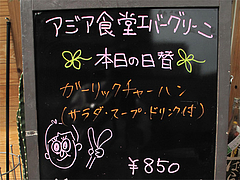 アジア食堂エバーグリーン
本日の日替
ガーリックチャーハン
(サラダ・スープ・ドリンク付)
¥850